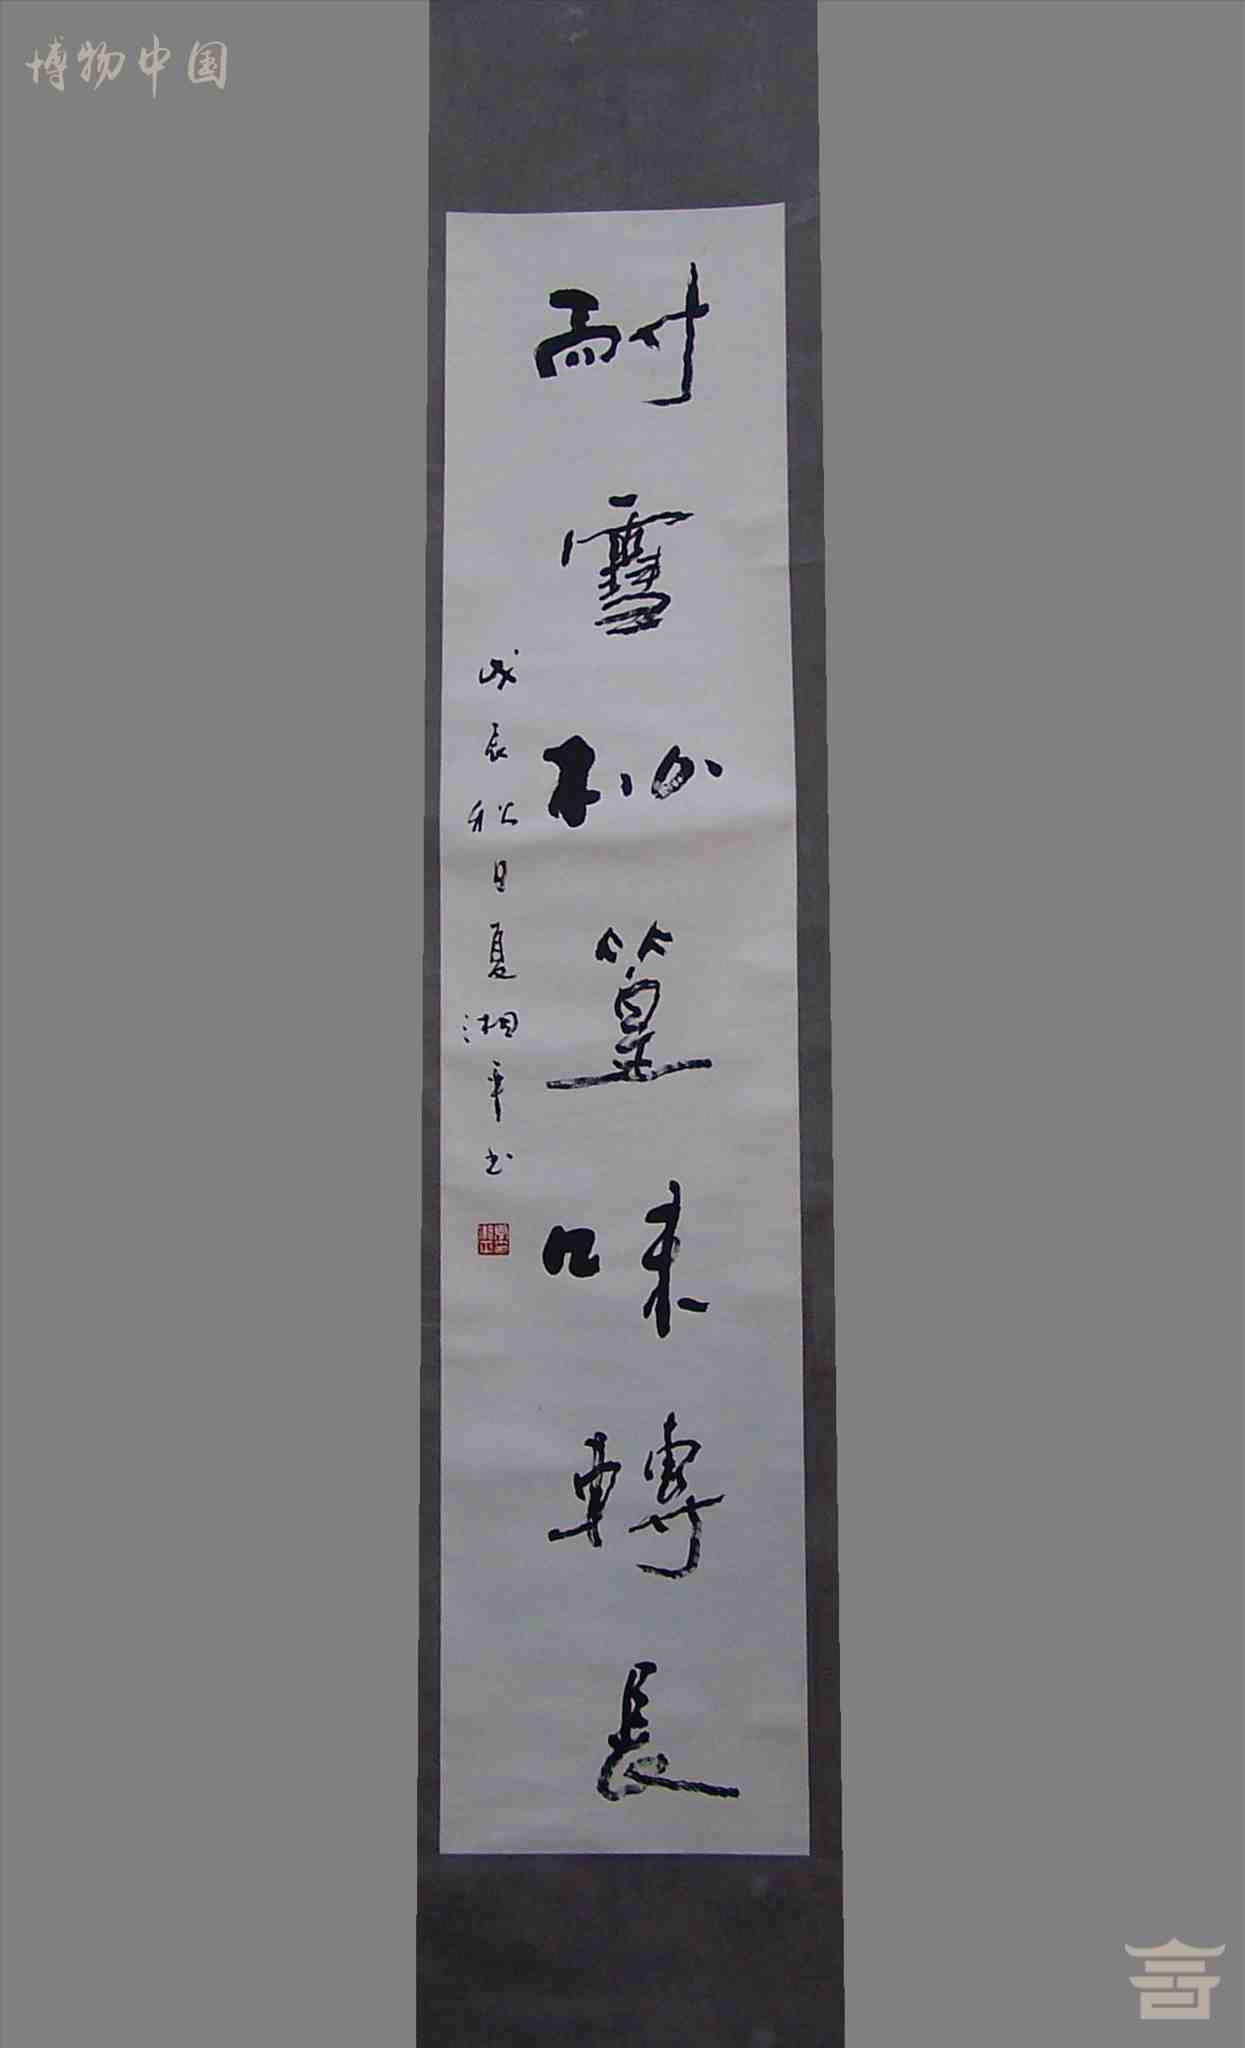 博物中国
耐雪松篁味轉長
戊辰秋日夏湘平书